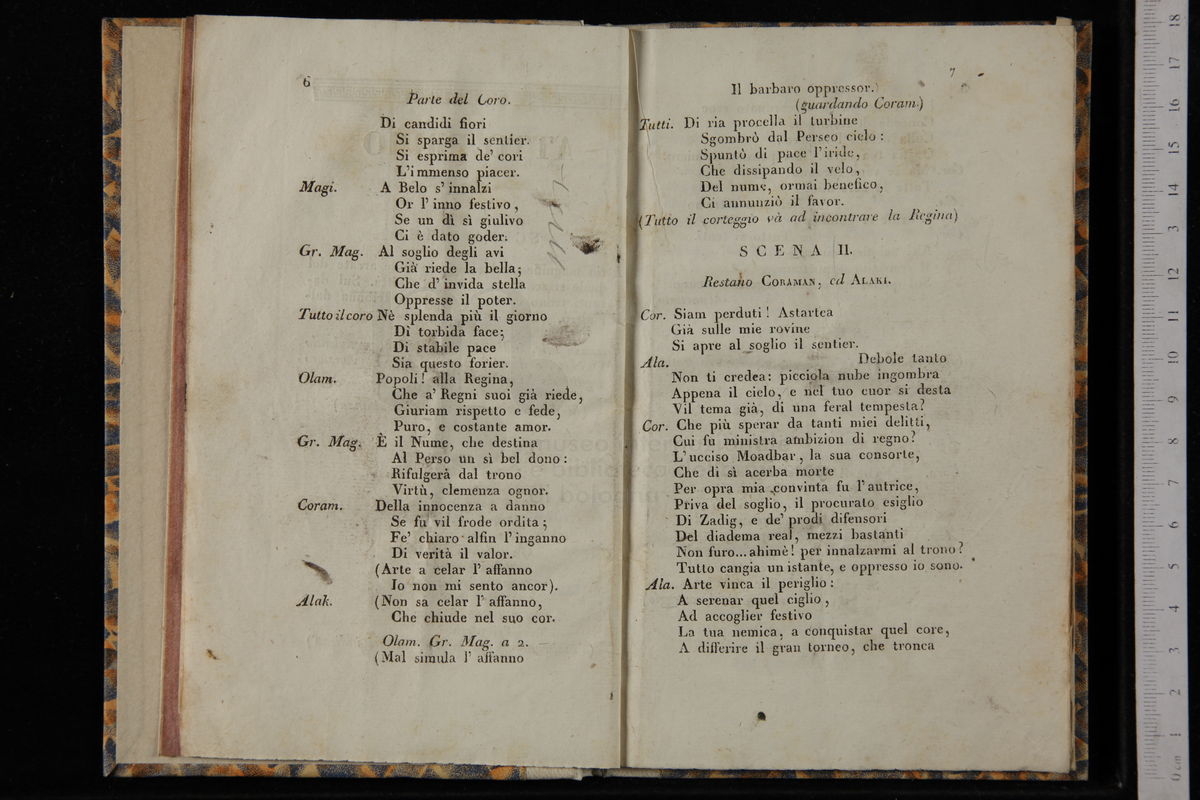 6
Parte del Coro.
Di candidi fiori
Si sparga il sentier.
Si esprima de' cori
L'immenso piacer.
Magi. A Belo s' innalzi
Or l' inno festivo,
Se un dì sì giulivo
Ci è dato goder.
Gr. Mag. Al soglio degli avi
Già riede la bella;
Che d' invida stella
Oppresse il poter.
Tutto il coro Nè splenda più il giorno
Di torbida face;
Di stabile pace
Sia questo forier.
Olam. Popoli! alla Regina,
Che a' Regni suoi già riede,
Giuriam rispetto e fede,
Puro, e costante amor.
Gr. Mag. È il Nume, che destina
Al Perso un sì bel dono:
Rifulgerà dal trono
Virtù, clemenza ognor.
Coram. Della innocenza a danno
Se fu vil frode ordita;
Fe' chiaro alfin l' inganno
Di verità il valor.
(Arte a celar l' affanno
Io non mi sento ancor).
Alak. (Non sa celar l' affanno,
Che chiude nel suo cor.
Olam. Gr. Mag. a 2.
(Mal simula l' affanno
7
Il barbaro oppressor.)
(guardando Coram.)
Tutti. Di ria procella il turbine
Sgombrò dal Perseo cielo:
Spuntò di pace l' iride,
Che dissipando il velo,
Del nume, ormai benefico,
Ci annunziò il favor.
(Tutto il corteggio và ad incontrare la Regina)
SCENA II.
Restano CORAMAN, ed ALAKI.
Cor. Siam perduti! Astartea
Già sulle mie rovine
Si apre al soglio il sentier.
Ala. Debole tanto
Non ti credea: picciola nube ingombra
Appena il cielo, e nel tuo cuor si desta
Vil tema già, di una feral tempesta?
Cor. Che più sperar da tanti miei delitti,
Cui fu ministra ambizion di regno?
L' ucciso Moadbar, la sua consorte,
Che di sì acerba morte
Per opra mia convinta fu l' autrice,
Priva del soglio, il procurato esiglio
Di Zadig, e de' prodi difensori
Del diadema real, mezzi bastanti
Non furo... ahimè! per innalzarmi al trono?
Tutto cangia un istante, e oppresso io sono.
Ala. Arte vinca il periglio:
A serenar quel ciglio,
Ad accoglier festivo
La tua nemica, a conquistar quel core,
A differire il gran torneo, che tronca
museo
biblioteca
bologna
0 cm 1 2 3 4 5 6 7 8 9 10 11 12 13 14 15 16 17 18